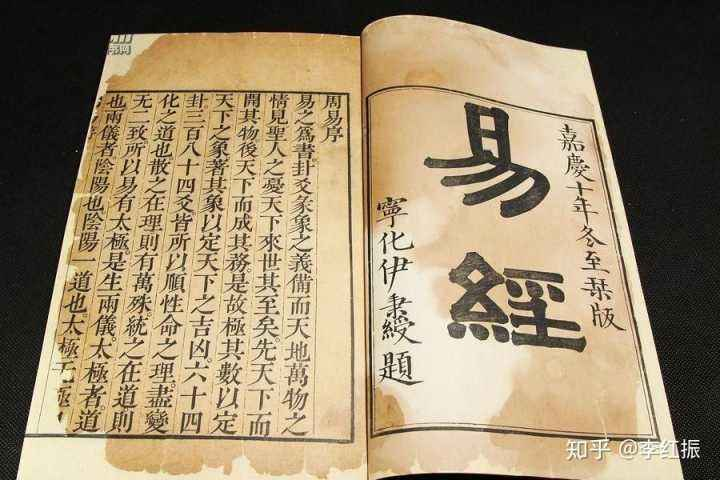 嘉慶十年冬至栞版
易經
寧化伊秉綬題
周易序
易之爲書卦爻彖象之義備而天地萬物之
情見聖人之憂天下來世其至矣。先天下而
開其物後天下而成其務。是故極其數以定
天下之象著其象以定天下之吉凶六十四
卦三百八十四爻皆所以順性命之理。盡變
化之道也散之在理則有萬殊統之在道則
无二致所以易有太極是生兩儀。太極者。道
也兩儀者陰陽也陰陽一道也太極无極
知乎 @李红振